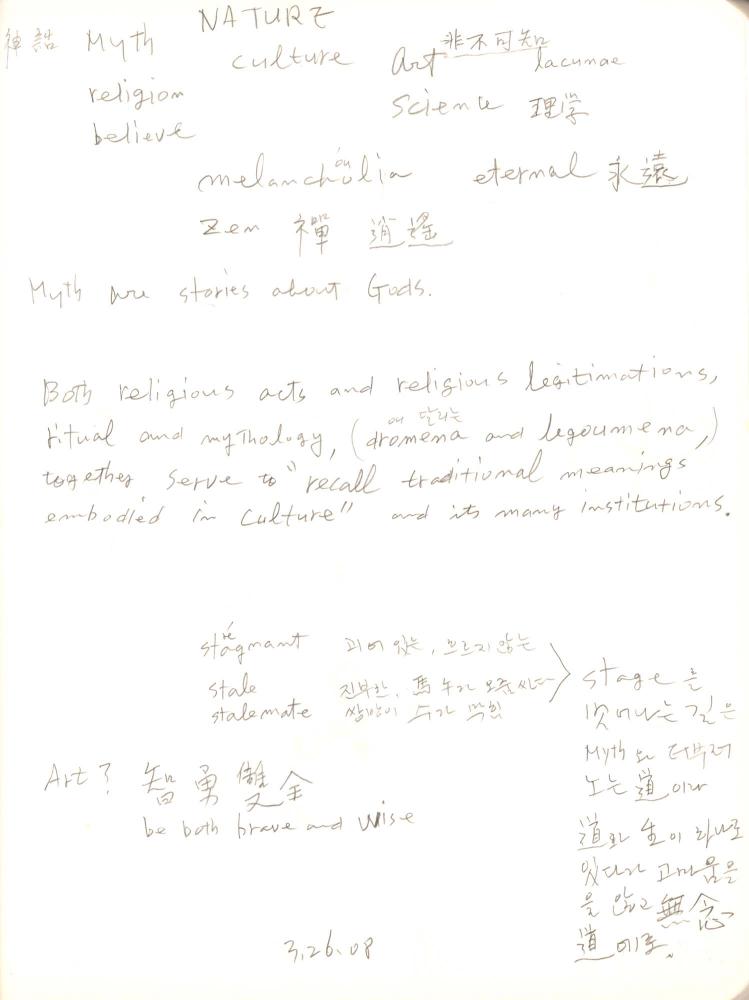 NATURE
神話 Myth culture Art 非不可知 lacunae
religion Science 理学
believe
melancholia eternal 永遠
Zen 禪 逍遙
Myth are stories about Gods.
Both religious acts and religious legitimations,
ritual and mythology, (dromena and legoumena,)
together serve to "recall traditional meanings
embodied in culture" and its many institutions.
stagnant 괴어 있는, 흐르지 않는
stale 진부한, 馬 누가 오줌싸다
stalemate 쌍방이 수가 막힘
stage 를
벗어나는 길은
Myth 와 더부러
노는 道이라
道와 生이 하나로
있다가 고마움을
을 안고 無念
道에로.
Art? 智勇雙全
be both brave and wise
3.26.08